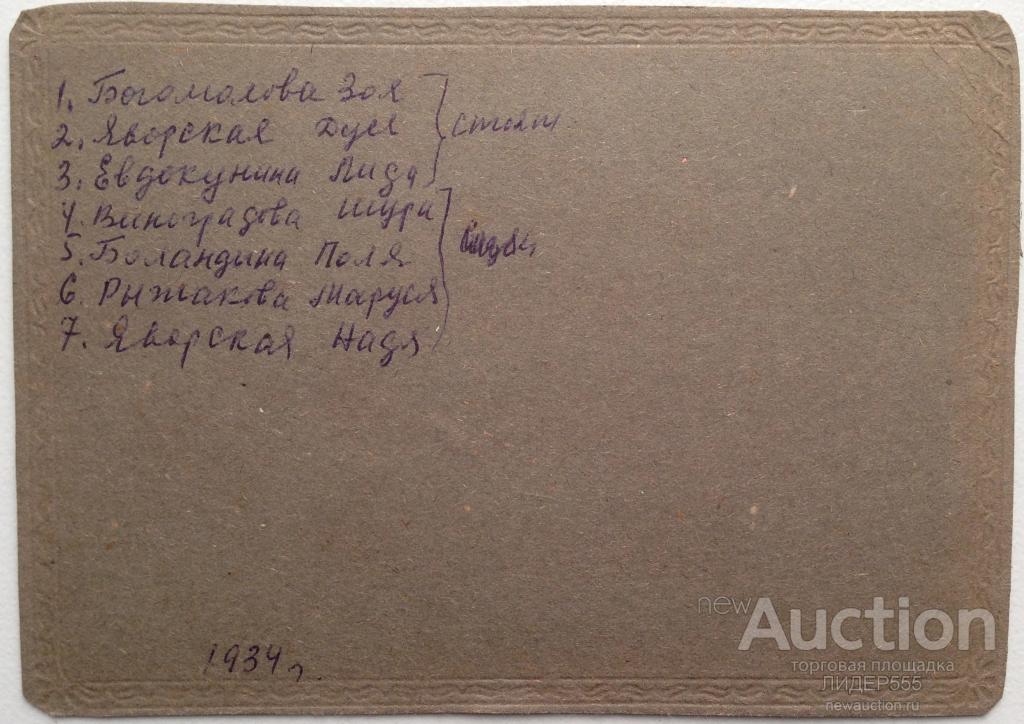 1. Богомолова Зоя
2. Яворская Дуся стоят
3. Евдокунина Лида
4. Виноградова Шура
5. Боландина Поля сидят
6. Рыжакова Маруся
7. Яворская Надя
1934 г.
newAuction
торговая площадка
ЛИДЕР555
newauction.ru